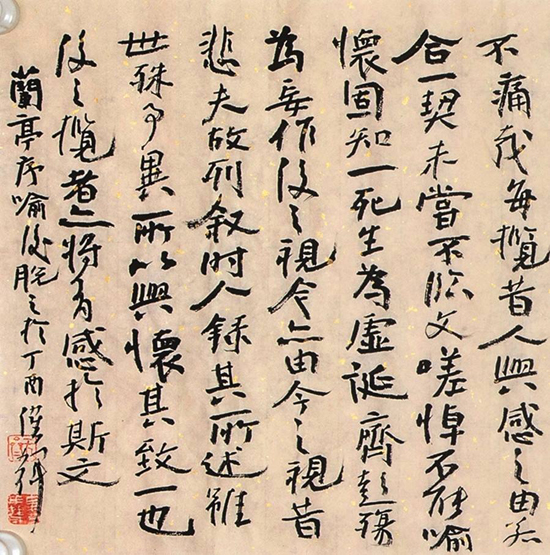 不痛哉每攬昔人興感之由若
合一契未嘗不臨文嗟悼不能喻
懷固知一死生為虛誕齊彭殤
為妄作後之視今亦由今之視昔
悲夫故列叙时人錄其所述雖
世殊事異所以興懷其致一也
後之攬者亦将有感於斯文
蘭亭序喻後脱之於丁酉